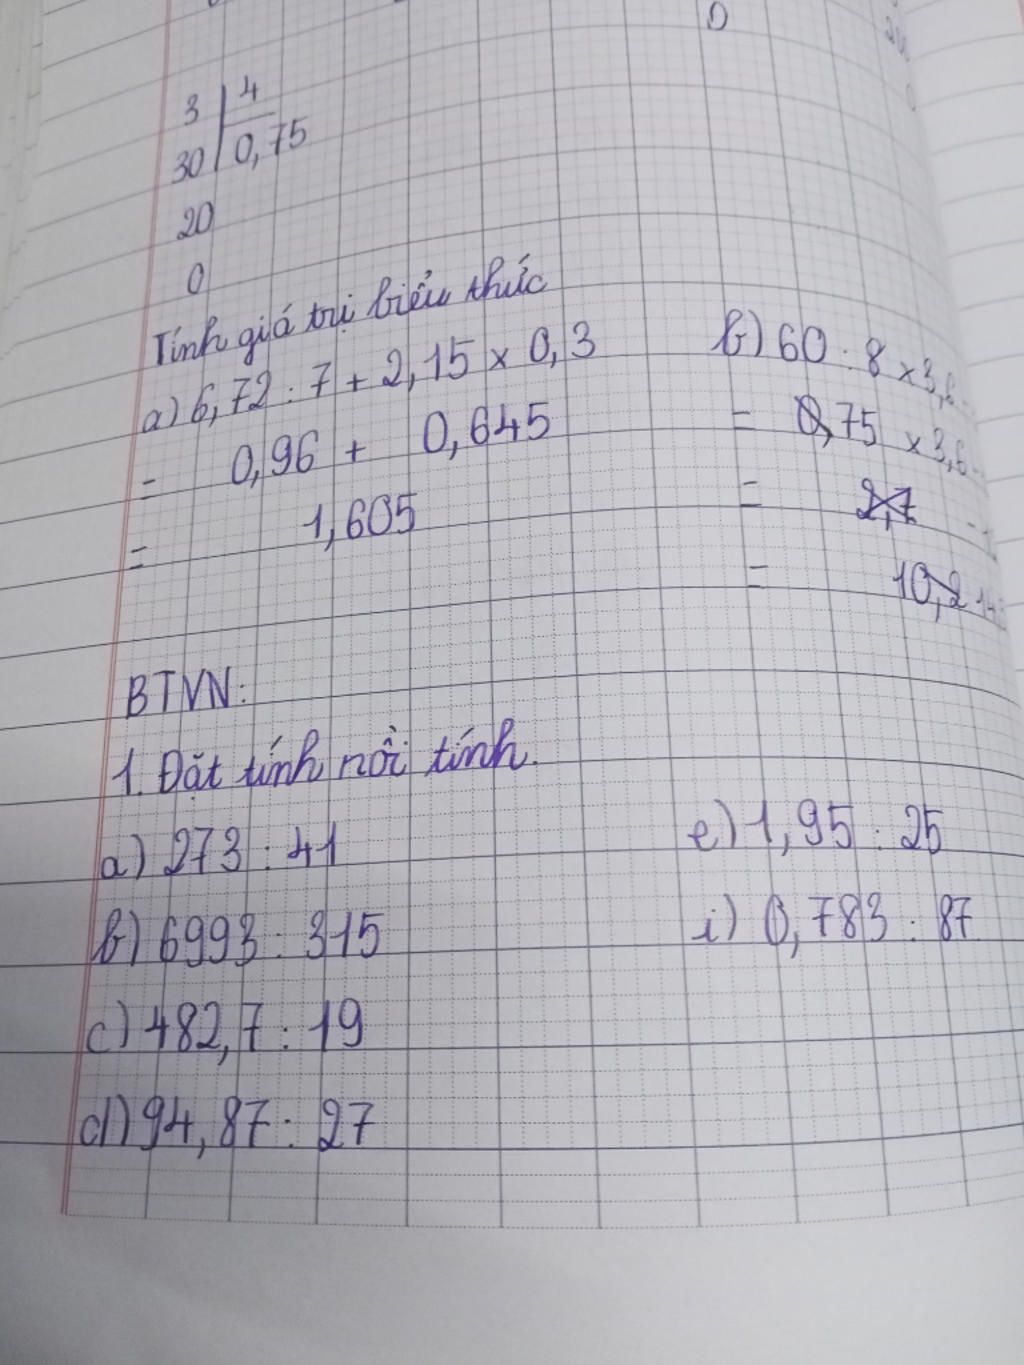 0
3 | 4
30 | 0,75
20
0
Tính giá trị biểu thức
a) 6,72 : 7 + 2,15 x 0,3
= 0,96 + 0,645
= 1,605
b) 60 : 8 x 3,6
= 0,75 x 3,6
= 2,7
= 10,2
BTVN:
1. Đặt tính rồi tính.
a) 273 : 41
b) 6993 : 315
c) 482,7 : 19
d) 94,87 : 27
e) 1,95 : 25
i) 0,783 : 87